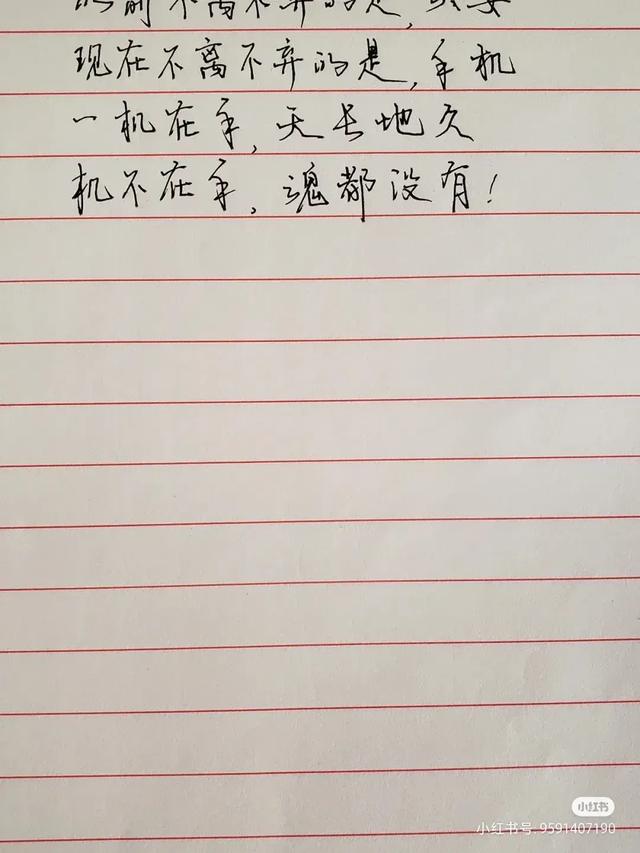 以前不离不弃的是，
现在不离不弃的是，手机
一机在手，天长地久
机不在手，魂都没有！
小红书
小红书号: 9591407190